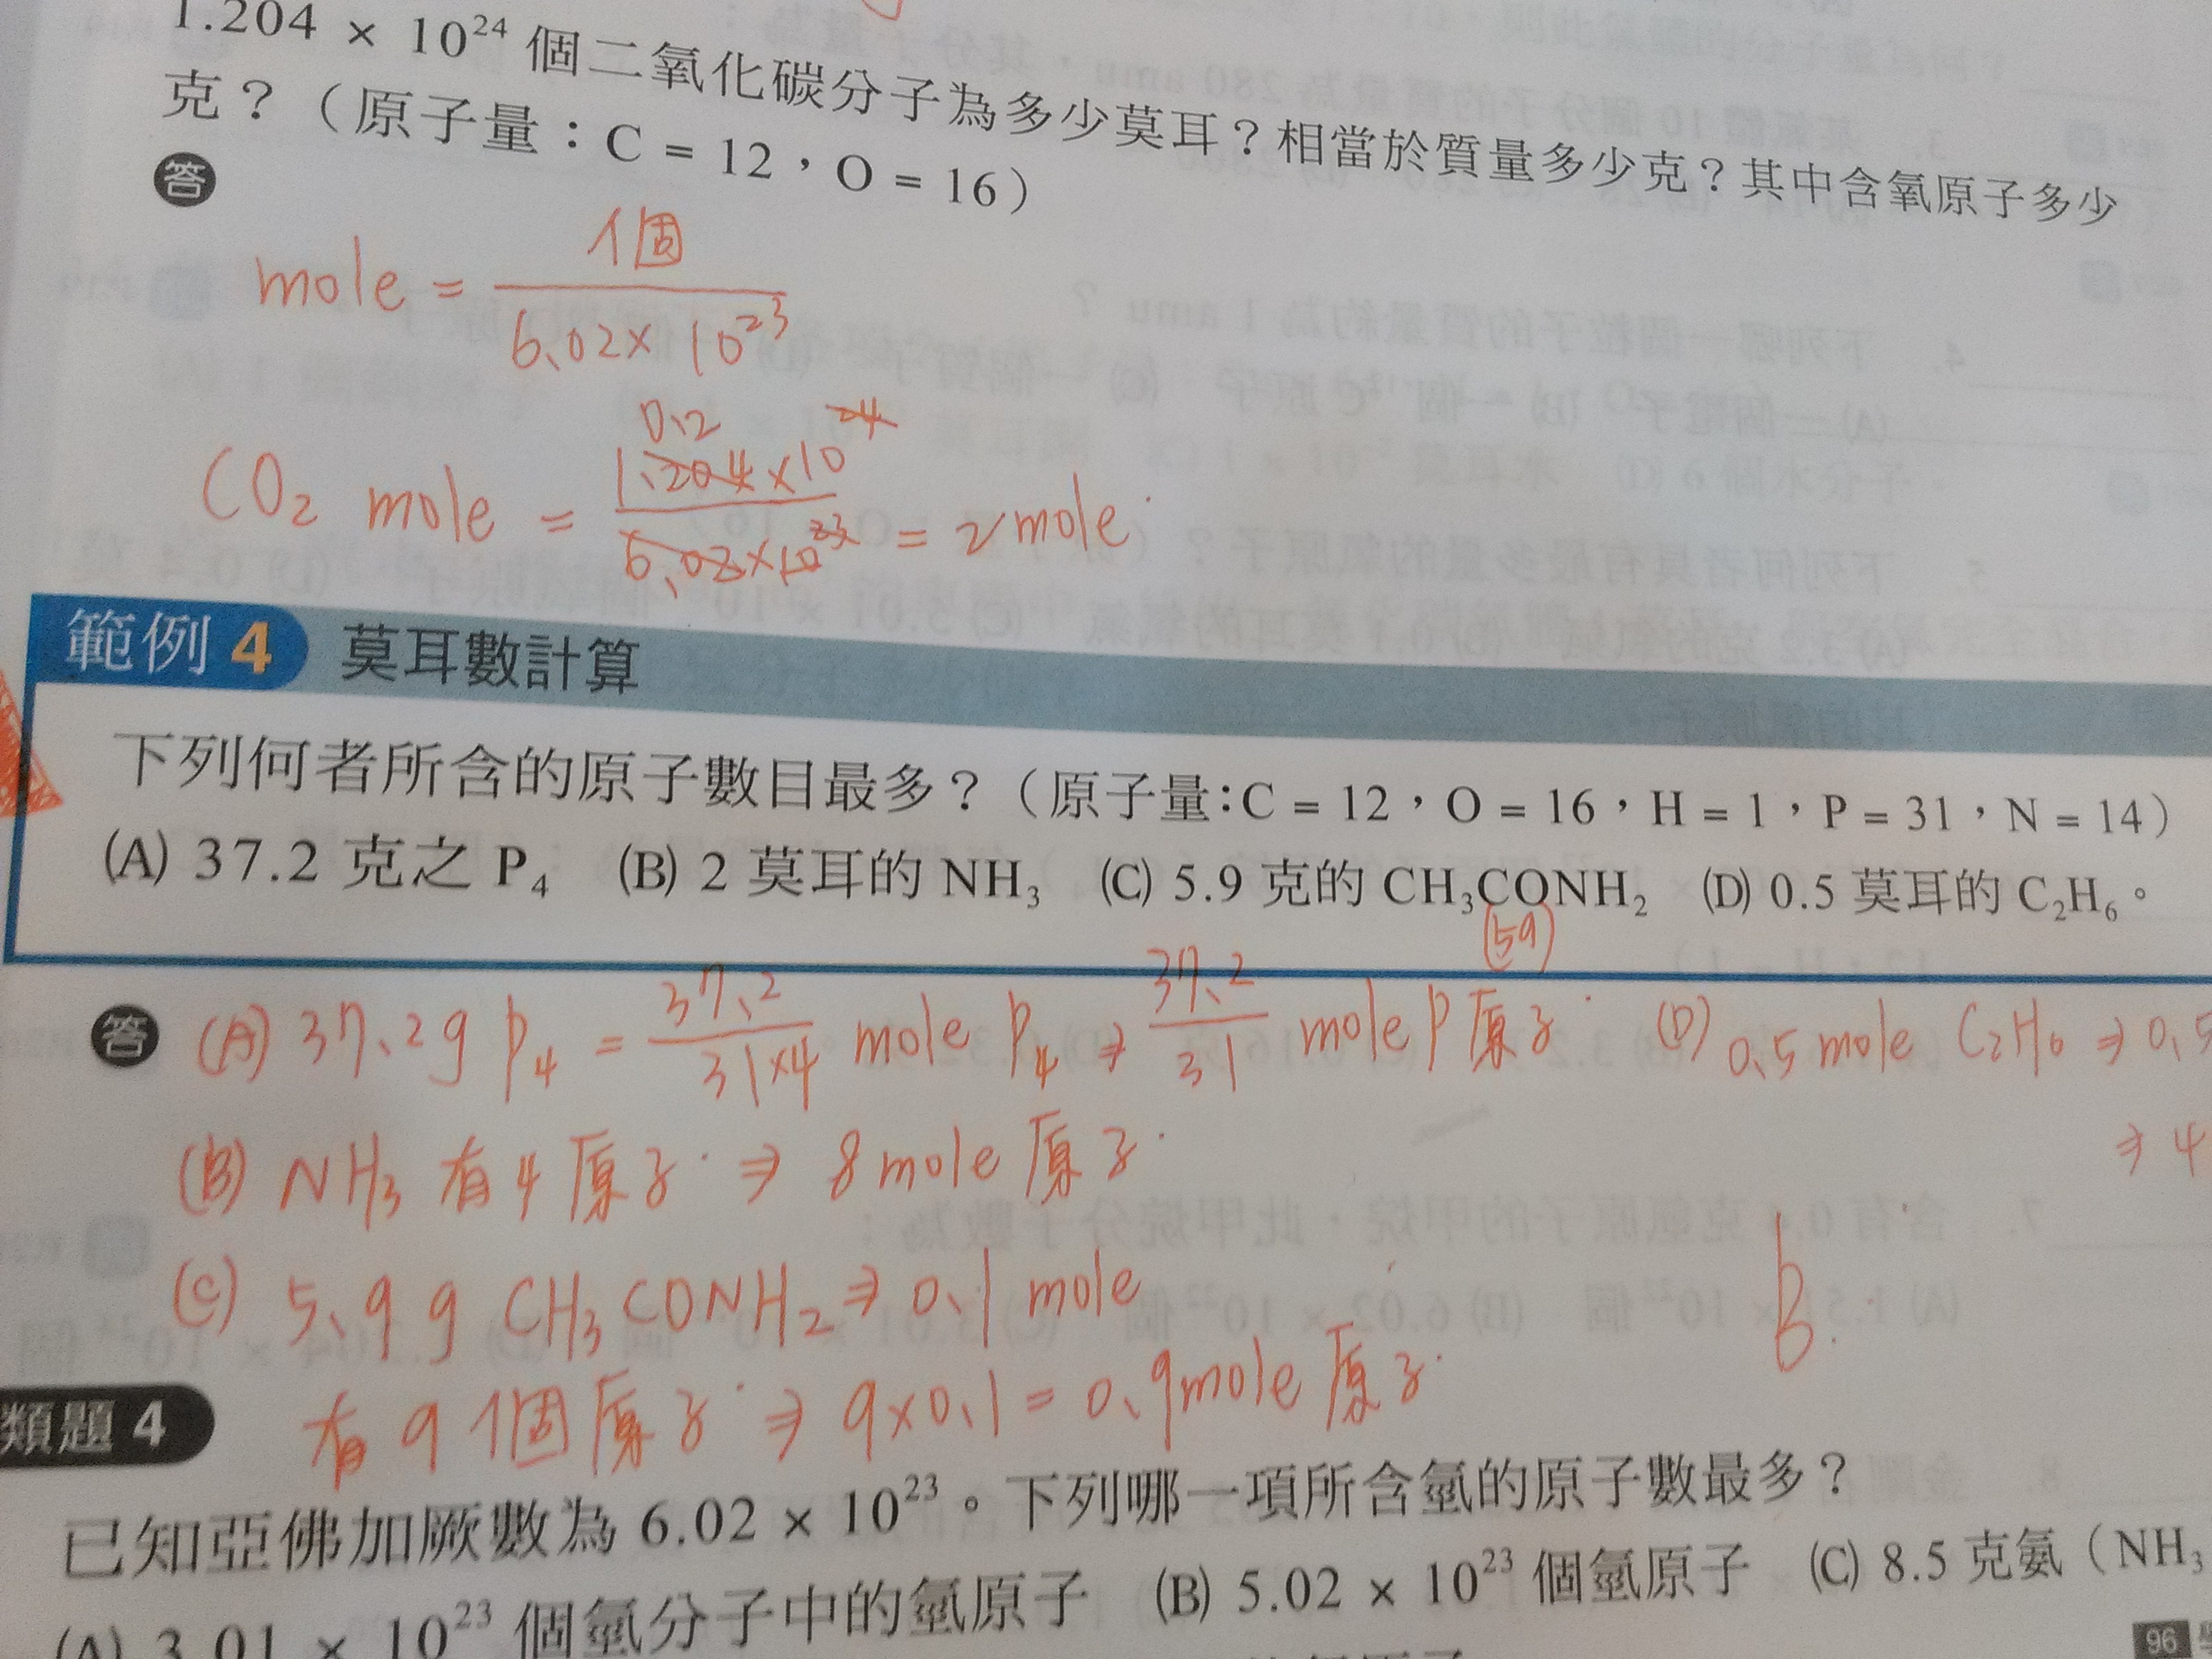 1.204 × 10²⁴ 個二氧化碳分子為多少莫耳？相當於質量多少克？其中含氧原子多少
克？（原子量：C = 12，O = 16）
答
mole = 個 / 6.02×10²³
CO₂ mole = 1.204×10²⁴ / 6.02×10²³ = 2mole
0.2
範例 4 莫耳數計算
下列何者所含的原子數目最多？（原子量：C = 12，O = 16，H = 1，P = 31，N = 14）
(A) 37.2 克之 P₄ (B) 2 莫耳的 NH₃ (C) 5.9 克的 CH₃CONH₂ (D) 0.5 莫耳的 C₂H₆。
(59)
答 (A) 37.2g P₄ = 37.2 / 31×4 mole P₄ ⇒ 37.2 / 31 mole P原子 (D) 0.5 mole C₂H₆ ⇒ 0.5
⇒ 4
(B) NH₃ 有4原子 ⇒ 8mole原子
(C) 5.9g CH₃CONH₂ ⇒ 0.1 mole
有9個原子 ⇒ 9×0.1 = 0.9mole原子
類題 4
已知亞佛加厥數為 6.02 × 10²³。下列哪一項所含氫的原子數最多？
(A) 3.01 × 10²³ 個氫分子中的氫原子 (B) 5.02 × 10²³ 個氫原子 (C) 8.5 克氨（NH₃
96